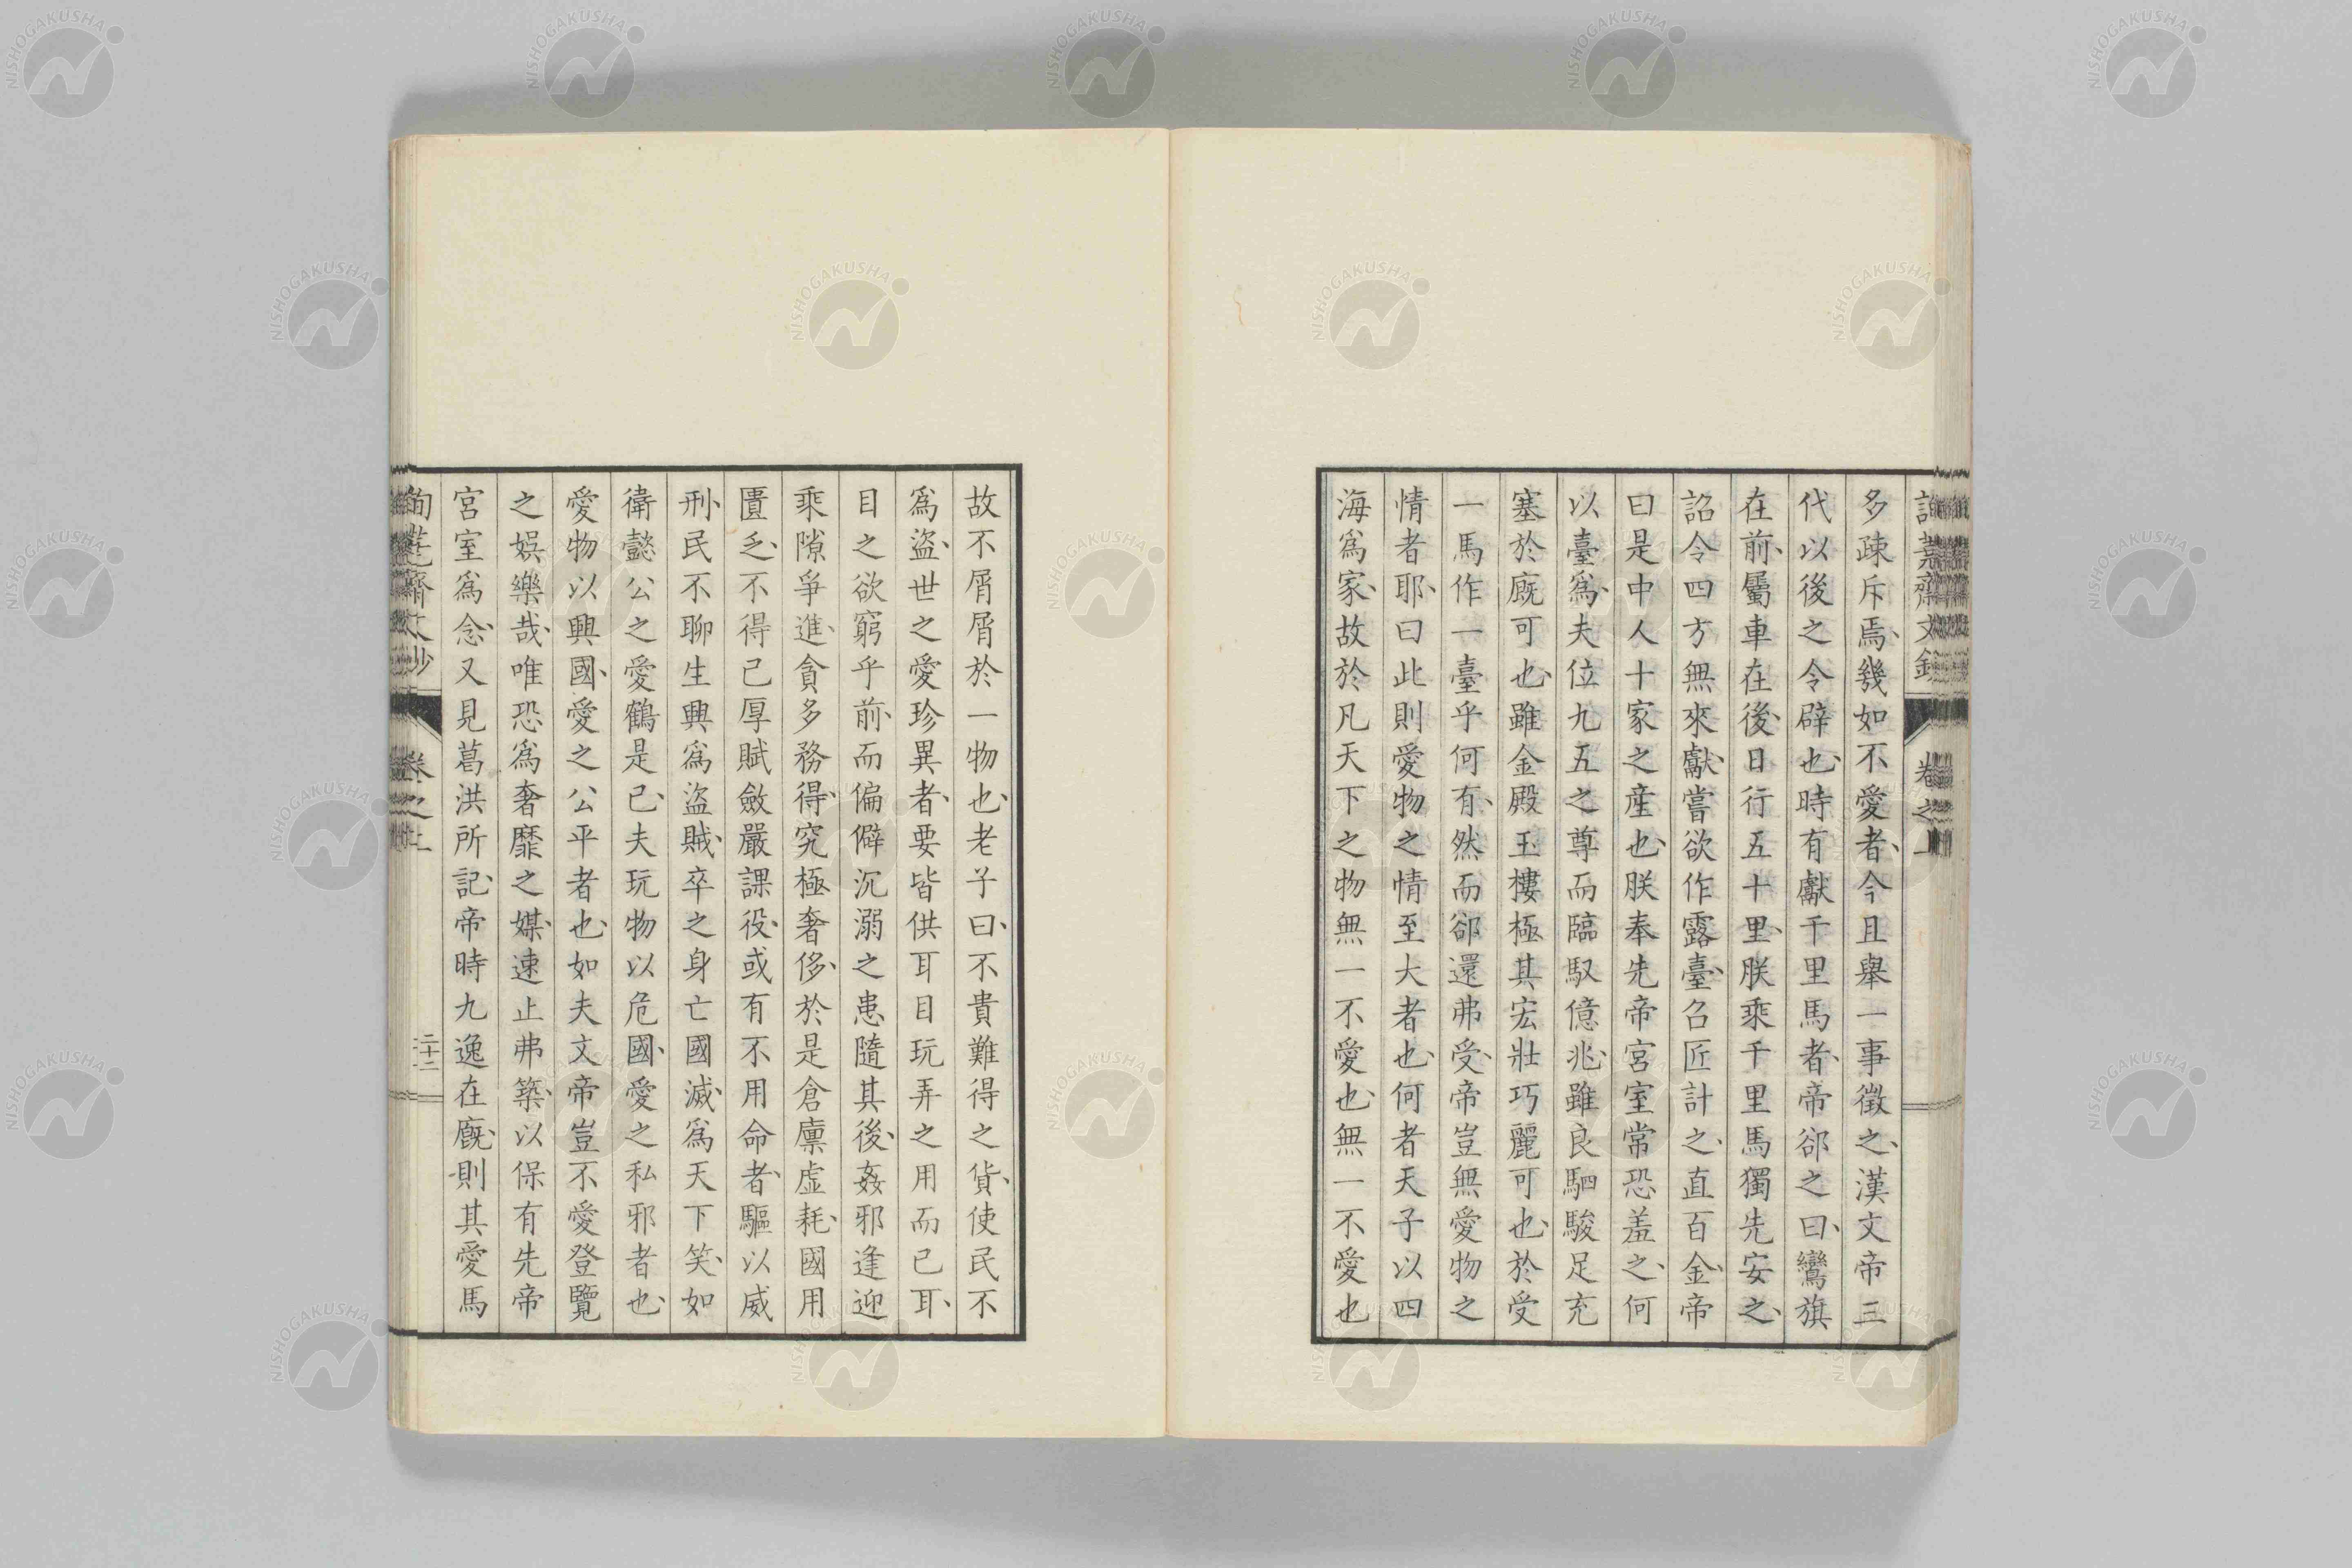 多疎斥焉、幾如不愛者、今且舉一事徵之、漢文帝三
代以後之令辟也、時有獻千里馬者、帝郤之曰、鸞旗
在前、屬車在後、日行五十里、朕乘千里馬獨先安之、
詔令四方無來獻、嘗欲作露臺、召匠計之、直百金、帝
曰是中人十家之産也、朕奉先帝宮室常恐羞之、何
以臺爲、夫位九五之尊而臨馭億兆、雖良駟駿足充
塞於廐可也、雖金殿玉樓極其宏壯巧麗可也、於受
一馬作一臺乎何有、然而郤還弗受、帝豈無愛物之
情者耶、曰此則愛物之情至大者也、何者天子以四
海爲家、故於凡天下之物無一不愛也、無一不愛也
故不屑屑於一物也、老子曰、不貴難得之貨、使民不
爲盜、世之愛珍異者、要皆供耳目玩弄之用而已耳、
目之欲窮乎前、而偏僻沉溺之患隨其後、姦邪逢迎
乘隙爭進、貪多務得、究極奢侈、於是倉廩虛耗、國用
匱乏、不得已厚賦斂嚴課役、或有不用命者、驅以威
刑、民不聊生興爲盜賊、卒之身亡國滅、爲天下笑、如
衞懿公之愛鶴是已、夫玩物以危國、愛之私邪者也、
愛物以興國、愛之公平者也、如夫文帝豈不愛登覽
之娛樂哉、唯恐爲奢靡之媒、速止弗築、以保有先帝
宮室爲念、又見葛洪所記、帝時九逸在廐、則其愛馬
卷之上
二十二
NISHOGAKUSHA